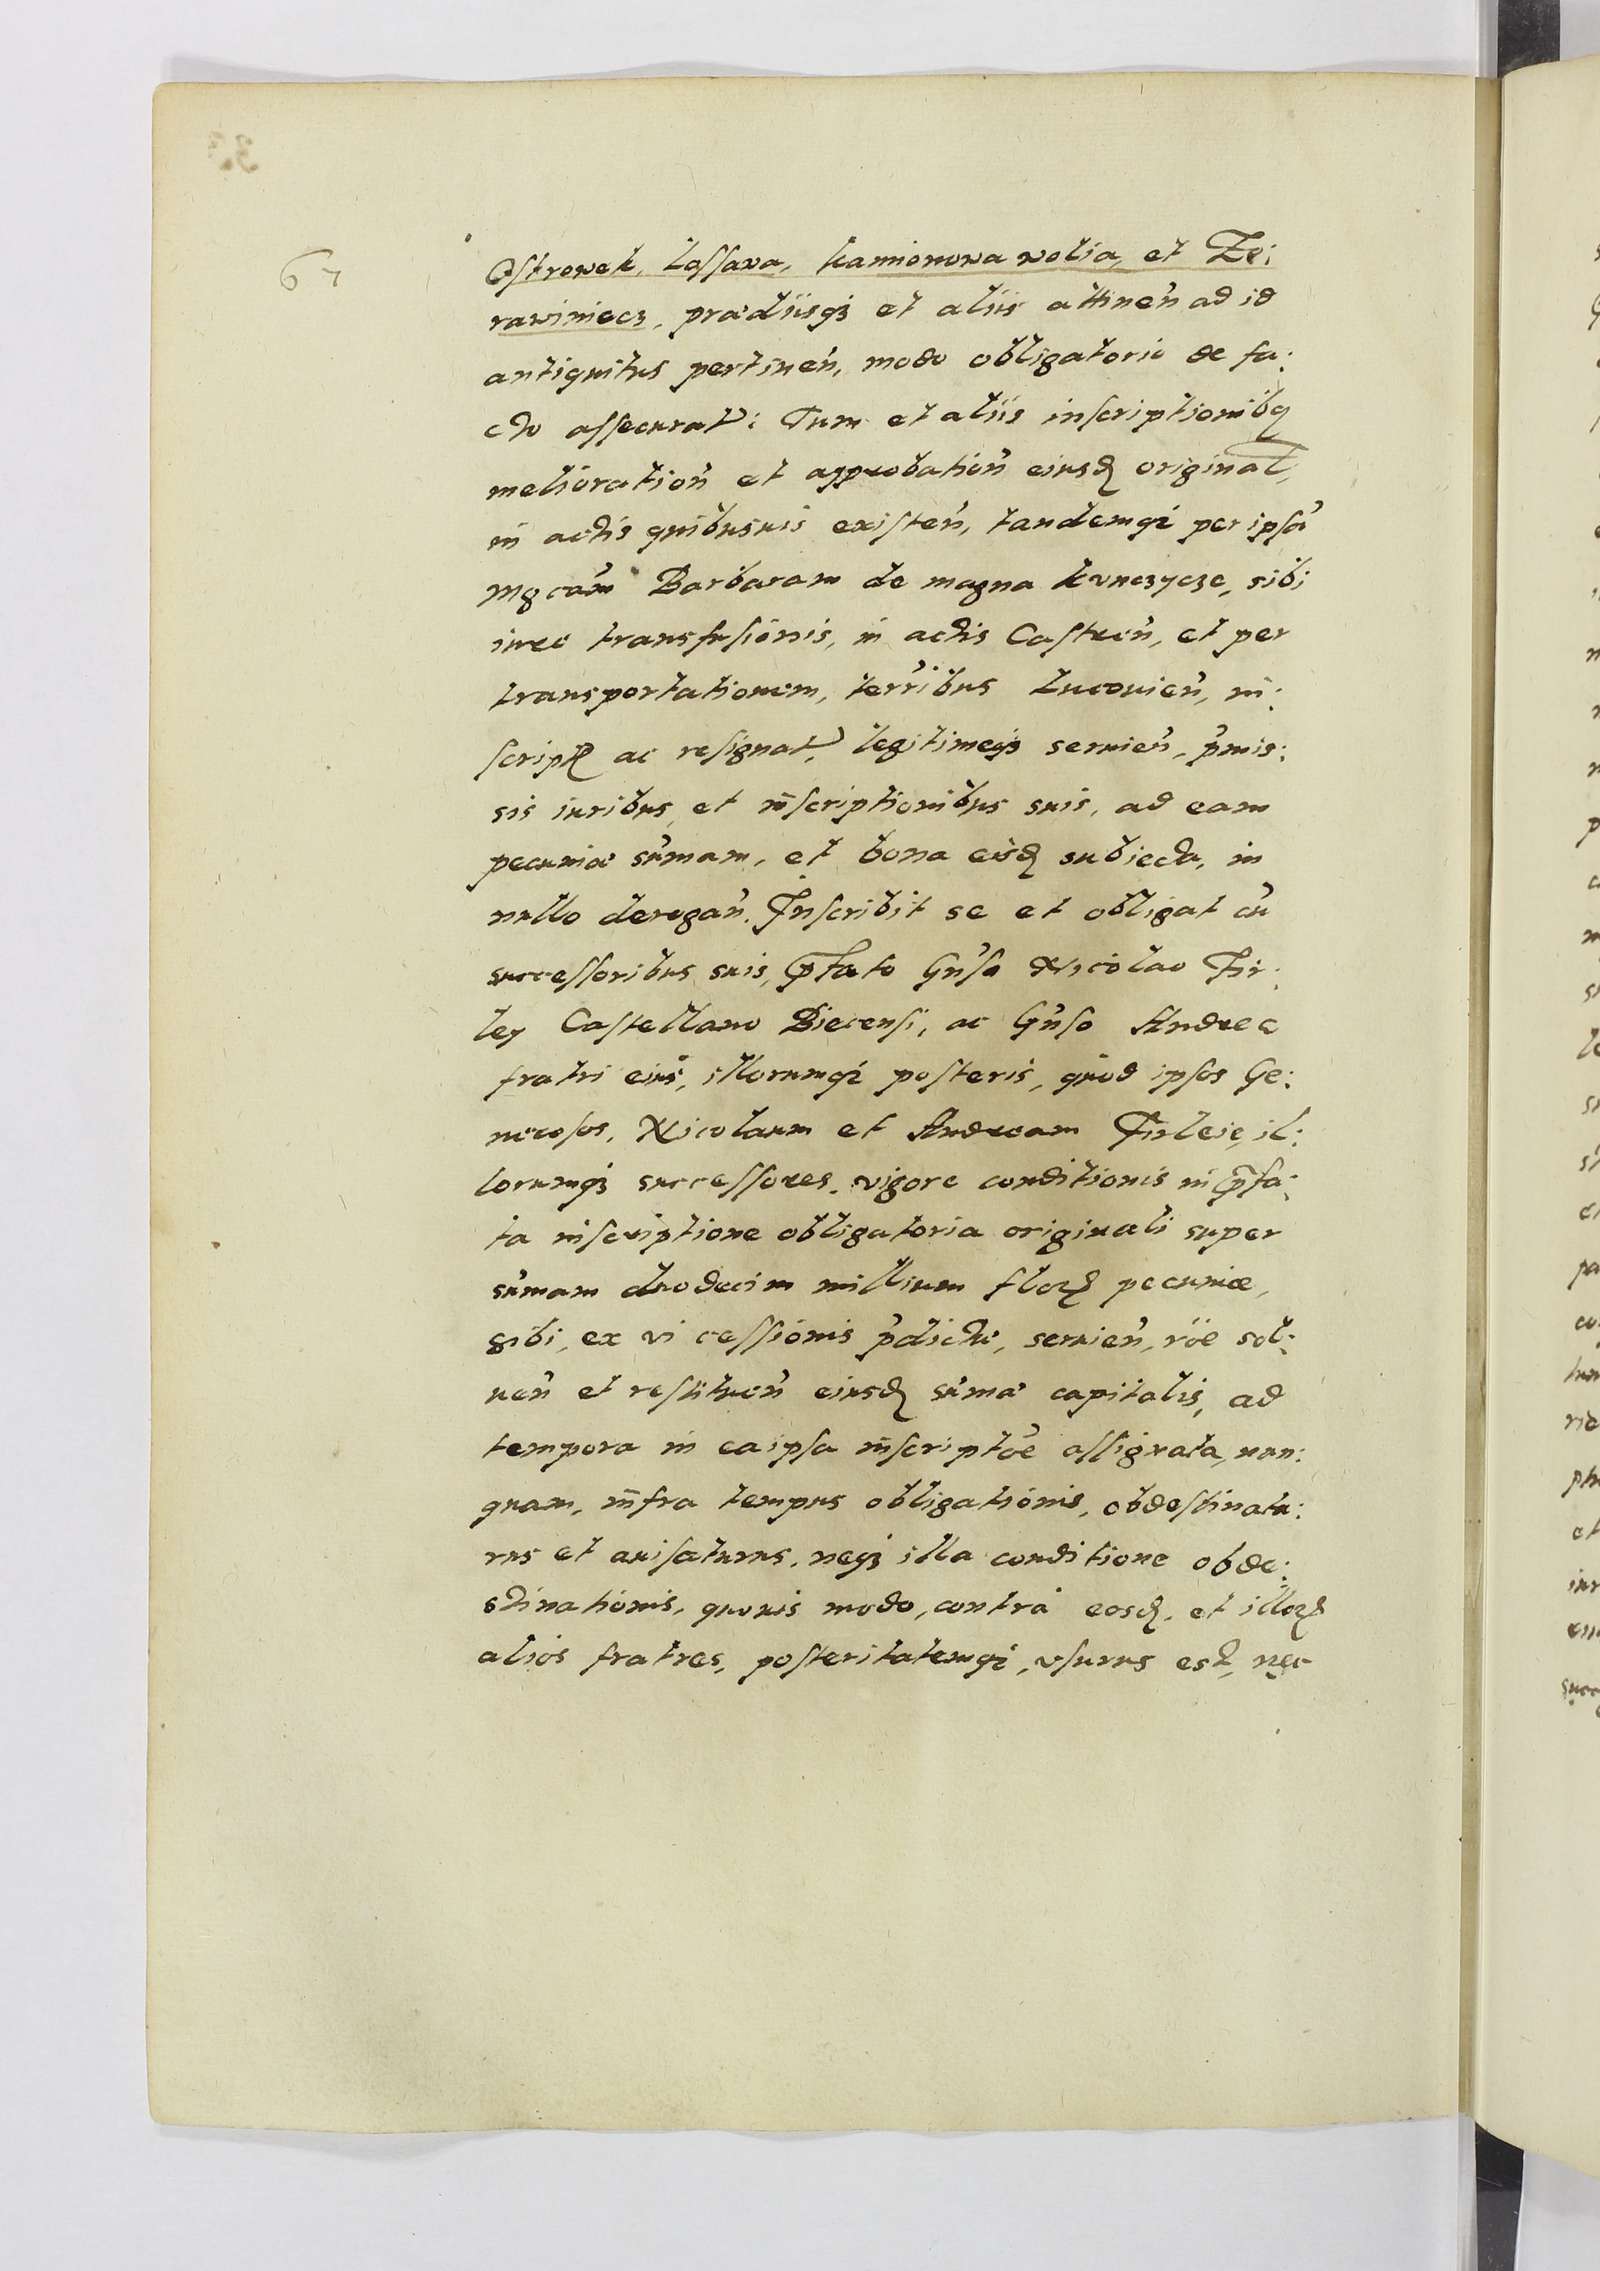 67
Ostrowek, Lassawa, Kamionowa wolia, et Ze:
rawiniecz, prædiisq3 et aliis attineń ad id
antiquitus pertineń, modo obligatorio de fa:
cto assecurat: Tum et aliis inscriptionibq
melioratioń et approbatioń eiusd original,
in actis quibusuis existeń, tandemq3 per ipsā
Mgcam Barbaram de magna Kunczycze, sibi
iure transfusionis, in actis Castreń, et per
transportationem, terribus Lucouień, in:
script ac resignat, legitimeq3 seruień, pmis:
sis iuribus et inscriptionibus suis, ad eam
pecuniæ sumam, et bona eisd subiecta, in
nullo derogań. Inscribit se et obligat cū
successoribus suis, pfato Gńso Nicolao Fir:
ley Castellano Biecensi, ac Gńso Andree
fratri eius, illorumq3 posteris, quod ipsos Ge:
nerosos, Nicolaum et Andream Firleie, il:
lorumq3 successores, vigore conditionis in pfa:
ta inscriptione obligatoria originali super
sumam duodecim millium florz pecuniæ,
sibi, ex vi cessionis pdictæ, seruień, rōe sol:
ueń et restitueń eiusd sumæ capitalis, ad
tempora in ea ipsa inscriptōe assignata, nun:
quam, infra tempus obligationis, obdestinatu:
rus et auisaturus, neq3 illa conditione obde:
stinationis, quouis modo, contrà eosd, et illorz
aliòs fratres, posteritatemq3, vsurus est, nec